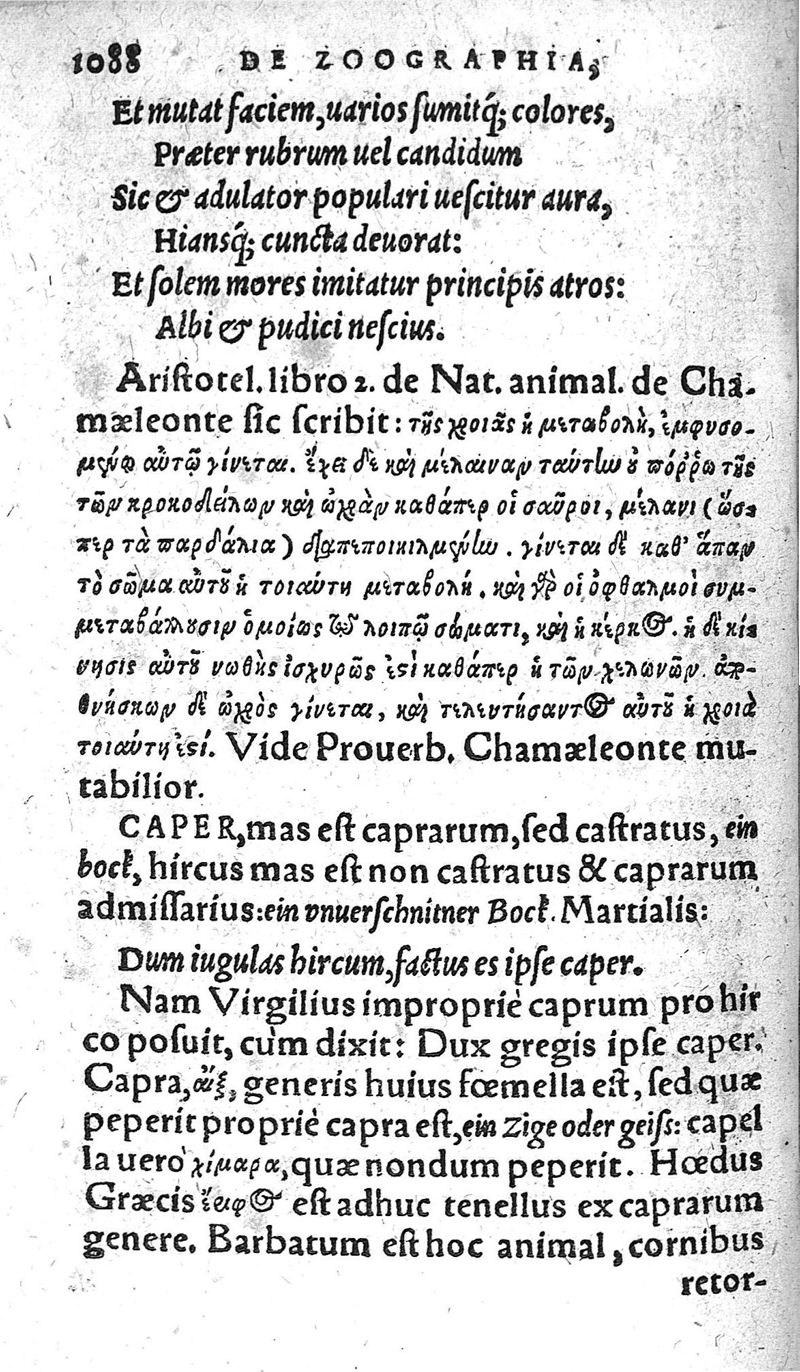 1088 DE ZOOGRAPHIA,
Et mutat faciem, uarios ſumitq́; colores,
Præter rubrum uel candidum
Sic & adulator populari ueſcitur aura,
Hiansq́; cuncta deuorat:
Et ſolem mores imitatur principis atros:
Albi & pudici neſcius.
Ariſtotel. libro 2. de Nat. animal. de Cha-
mæleonte ſic ſcribit: τῆς χροιᾶς ἡ μεταβολὴ, ἐμφυσο-
μένῳ αὐτῷ γίνεται. ἔχει δὲ καὶ μέλαιναν ταύτην ὀ πόῤῥω τῆς
τῶν κροκοδείλων καὶ ὠχρὰν καθάπερ οἱ σαῦροι, μέλανι (ὥσ
περ τὰ παρδάλια) διαπεποικιλμένην. γίνεται δὲ καθ' ἅπαν
τὸ σῶμα αὐτοῦ ἡ τοιαύτη μεταβολή. καὶ γὰρ οἱ ὀφθαλμοὶ συμ-
μεταβάλλουσιν ὁμοίως τῷ λοιπῷ σώματι, καὶ ἡ κέρκος. ἡ δὲ κί
νησις αὐτοῦ νωθὴς ἰσχυρῶς ἐστὶ καθάπερ ἡ τῶν χελωνῶν. ἀπο-
θνήσκων δὲ ὠχρὸς γίνεται, καὶ τελευτήσαντος αὐτοῦ ἡ χροιὰ
τοιαύτη ἐστί. Vide Prouerb. Chamæleonte mu-
tabilior.
CAPER, mas eſt caprarum, ſed caſtratus, ein
bock, hircus mas eſt non caſtratus & caprarum
admiſſarius: ein vnuerſchnitner Bock. Martialis:
Dum iugulas hircum, factus es ipſe caper.
Nam Virgilius impropriè caprum pro hir
co poſuit, cùm dixit: Dux gregis ipſe caper.
Capra, αἲξ, generis huius fœmella eſt, ſed quæ
peperit propriè capra eſt, ein Zige oder geiſs: capel
la uero χίμαρα, quæ nondum peperit. Hœdus
Græcis ἔριφος eſt adhuc tenellus ex caprarum
genere. Barbatum eſt hoc animal, cornibus
retor-